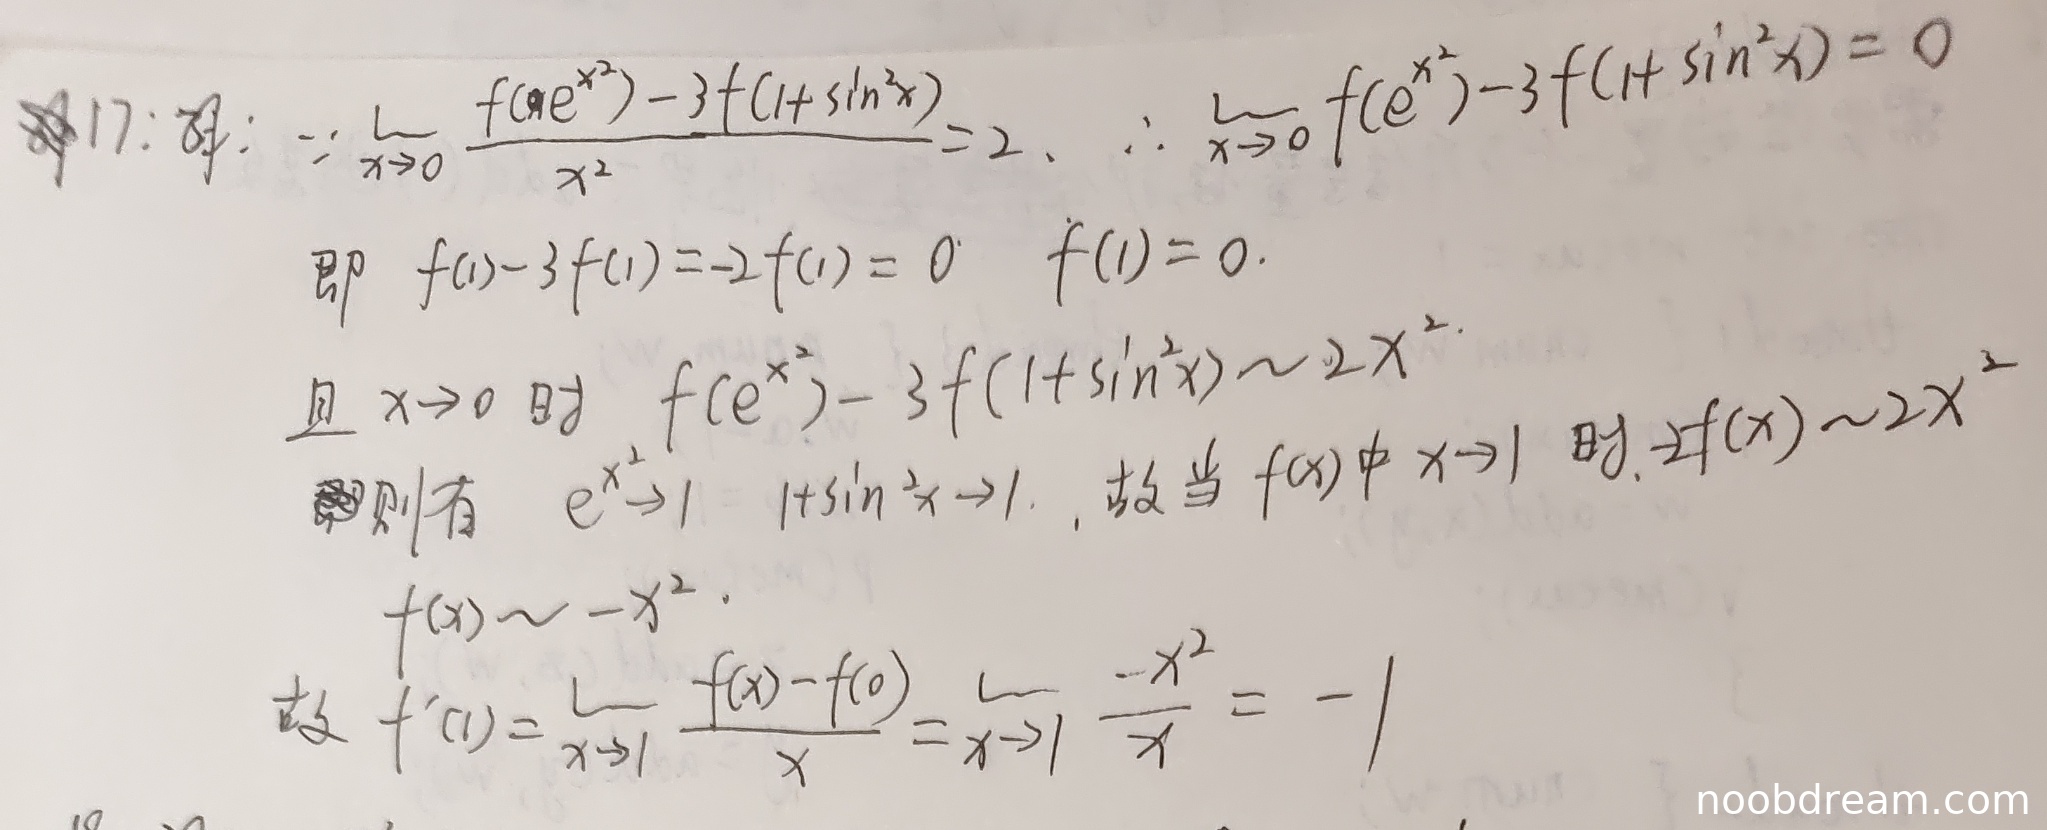 17: 解: ∵ lim_{x→0} \frac{f(e^{x²})-3f(1+sin²x)}{x²} = 2. ∴ lim_{x→0} f(e^{x²})-3f(1+sin²x) = 0
即 f(1)-3f(1)=-2f(1)=0 f(1)=0.
且 x→0 时 f(e^{x²})-3f(1+sin²x)~2x².
则有 e^{x²}→1 1+sin²x→1. , 故当 f(x)中 x→1 时. -2f(x)~2x²
f(x)~-x².
故 f'(1)= lim_{x→1} \frac{f(x)-f(0)}{x} = lim_{x→1} \frac{-x²}{x} = -1
noobdream.com